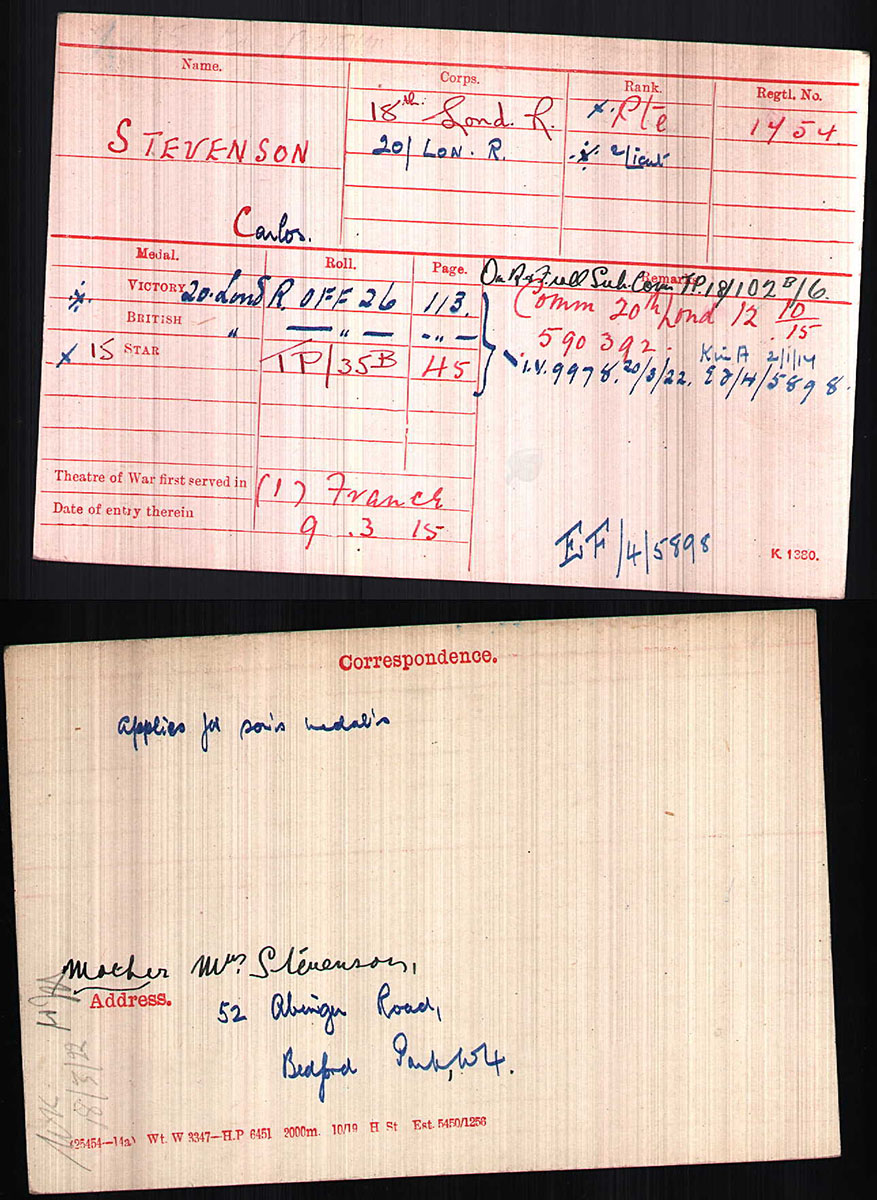 Name.
Corps.
Rank.
Regtl. No.
STEVENSON
Carlos.
18th. Lond. R.
20/ LON. R.
x. Pte
2/Lieut
1454
Medal.
Roll.
Page.
Remarks.
VICTORY
20. Lond R. OFF 26
113.
BRITISH
" — " — - " -
15 STAR
TP/35B
45
TP 18/102 B/6.
Comm 20th Lond 12 10/15
590392.
K in A
I.V. 9978. 20/3/22. EF/4/5898.
Theatre of War first served in
(1) France
Date of entry therein
9 .3 15
EF/4/5898
K. 1380.
Correspondence.
Applies for son's medals
Mother Mrs. Stevenson,
Address.
52 Abinger Road,
Bedford Park, W4.
18/3/22
(25454—14a) Wt. W 3347—H.P 6451 2000m. 10/19 H St Est. 5450/1256